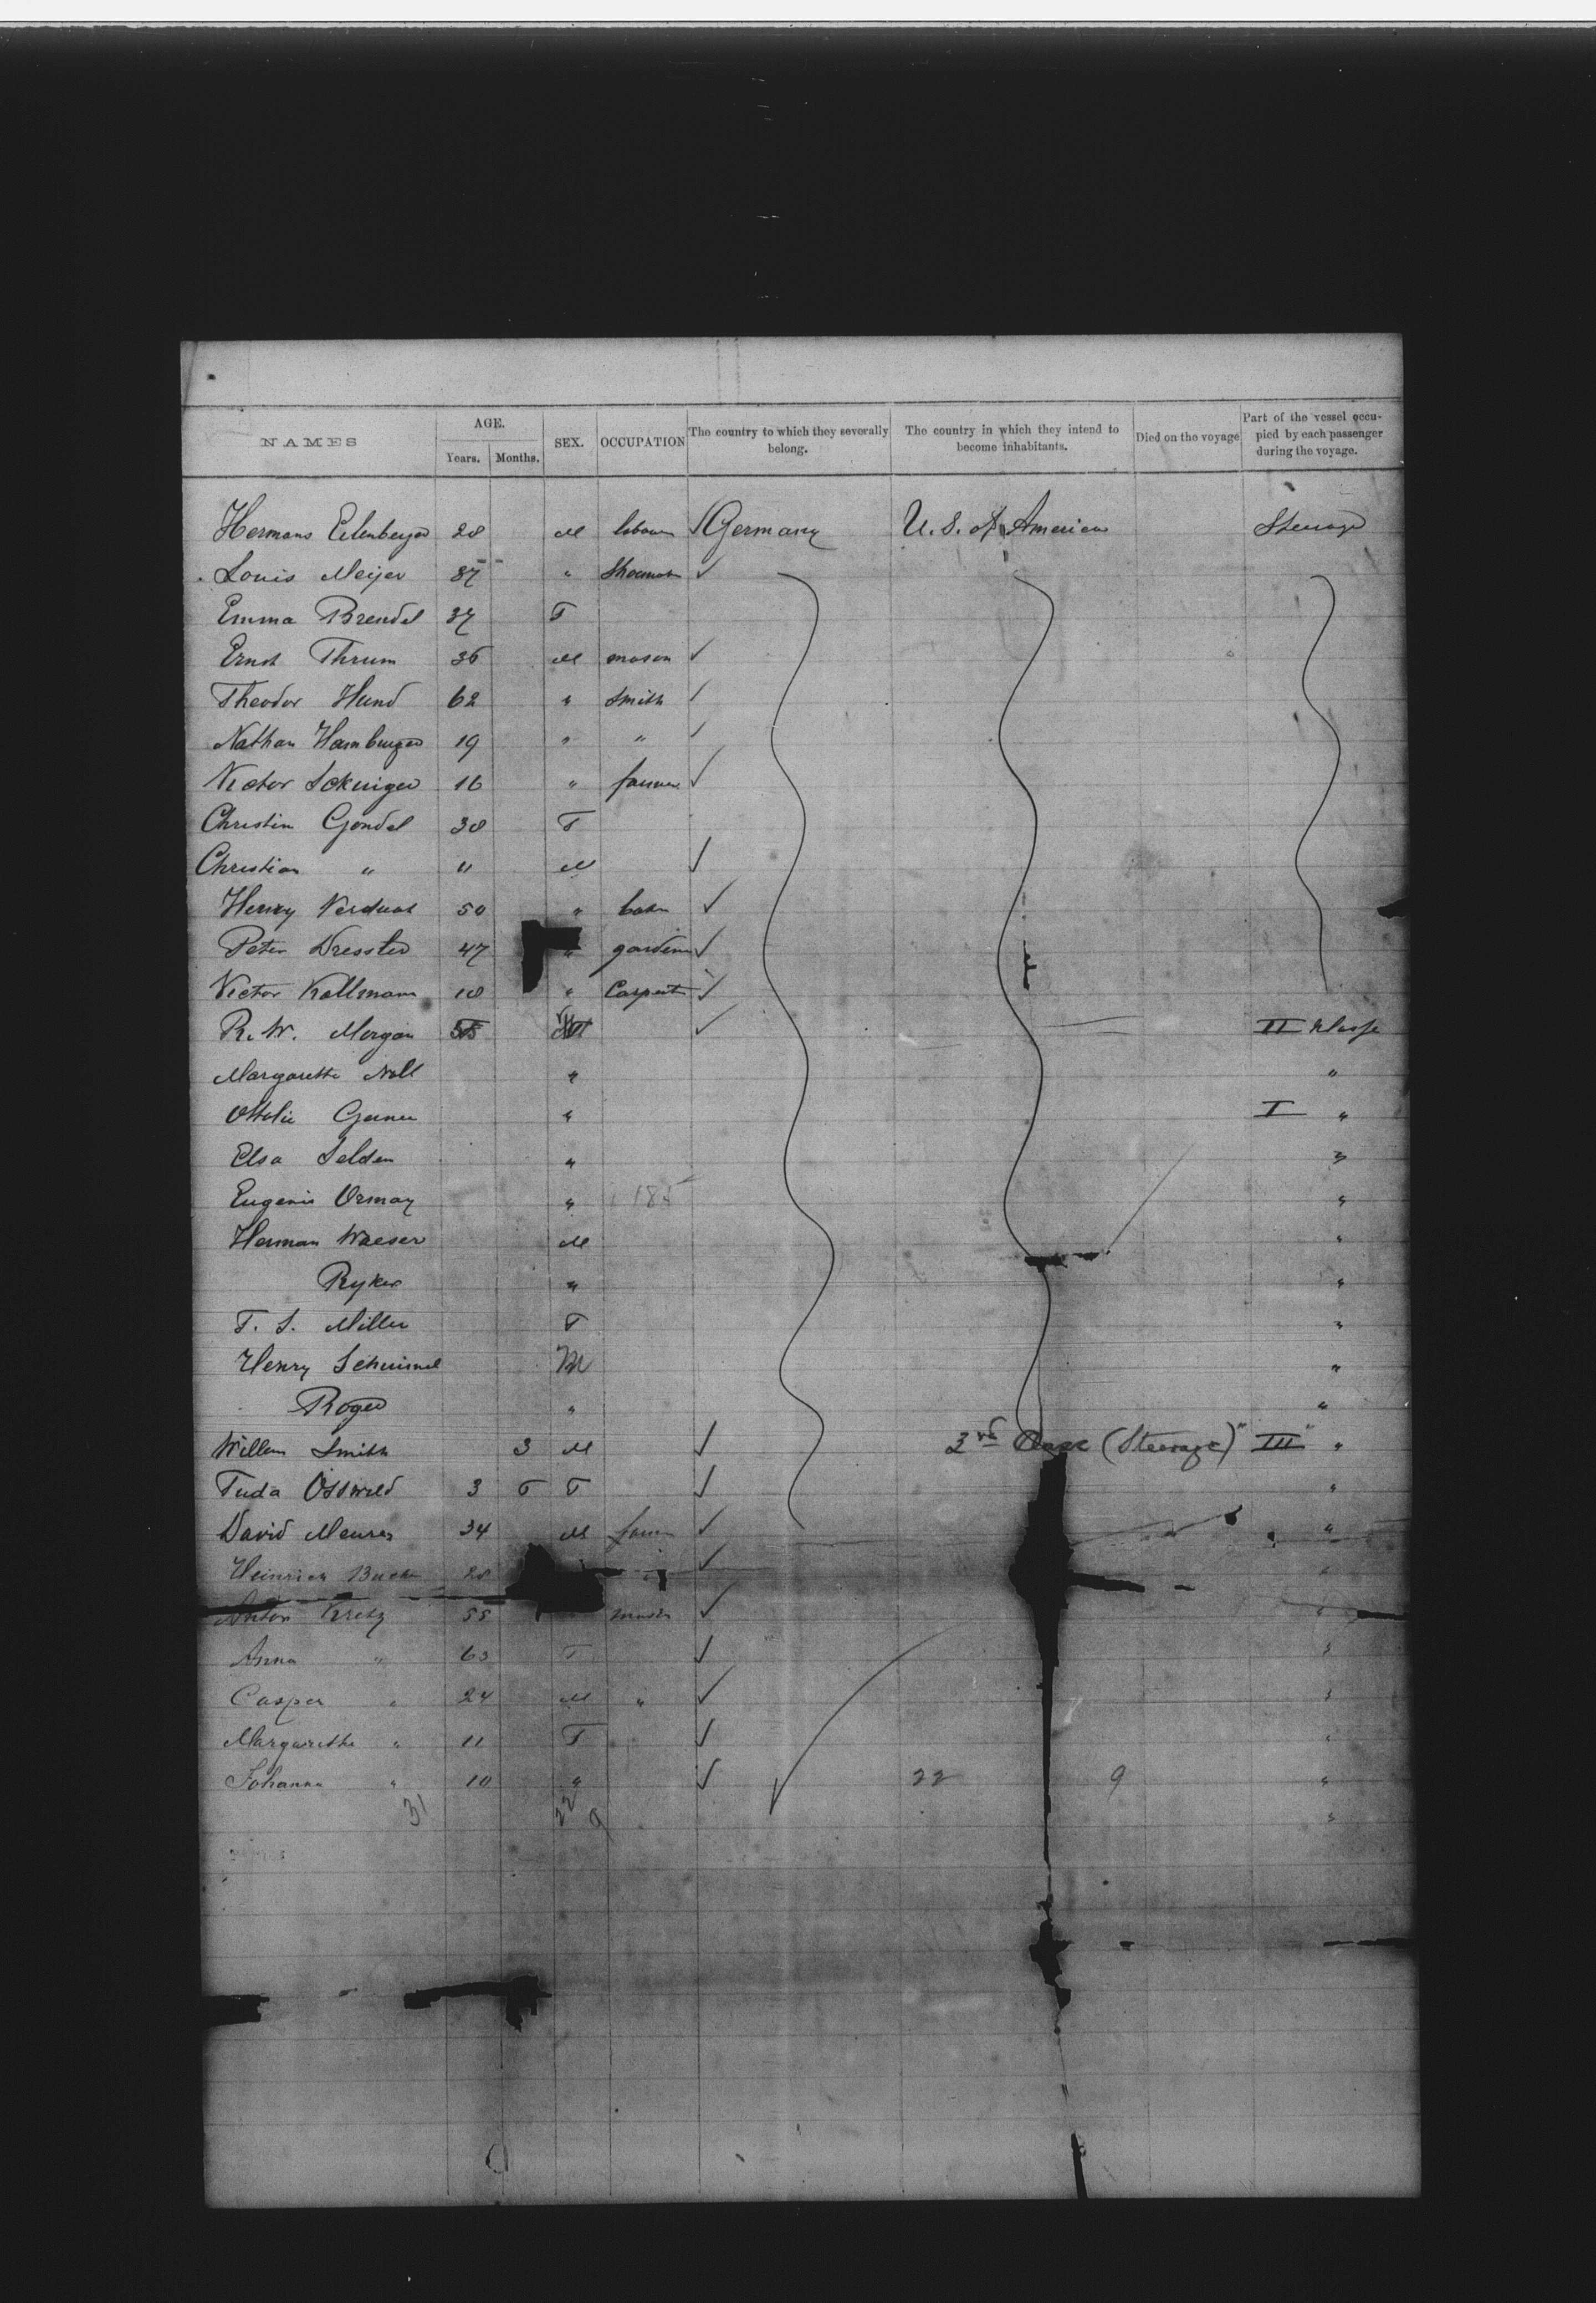 NAMES AGE. Years. Months. SEX. OCCUPATION The country to which they severally belong. The country in which they intend to become inhabitants. Died on the voyage Part of the vessel occupied by each passenger during the voyage.
Hermans Eilenberger 28 M labourer ✓ Germany U. S. of America Steerage
Louis Meijer 37 " Shoemak ✓
Emma Brendel 37 F
Ernst Thrum 36 M mason ✓
Theodor Hund 62 " Smith ✓
Nathan Hamburger 19 " " ✓
Victor 16 " farmer ✓
Christin Gondel 30 F
Christian " " M ✓
Henry 50 " ✓
Peter Dressler 47 " gardener ✓
Victor Kallmann 18 " Carpent ✓
R. W. Morgan ✓ II Klasse
Margarethe Noll " "
Ottolie " I "
Elsa Selden " "
Eugenie Ormay " 185 "
Herman Waeser M "
Ryker " "
F. S. Miller F "
Henry M "
Roger " "
Willem Smith 3 M ✓ 3rd Class (Steerage)" III "
Osswald 3 6 F ✓ "
David 34 M farm ✓ "
Heinrich 28 ✓ "
Anton Kretz 55 ✓ "
Anna " 63 F ✓ "
Casper " 24 M " ✓ "
Margarethe " 11 F ✓ "
Johanna " 10 " ✓ 22 9 "
31 22 9 "